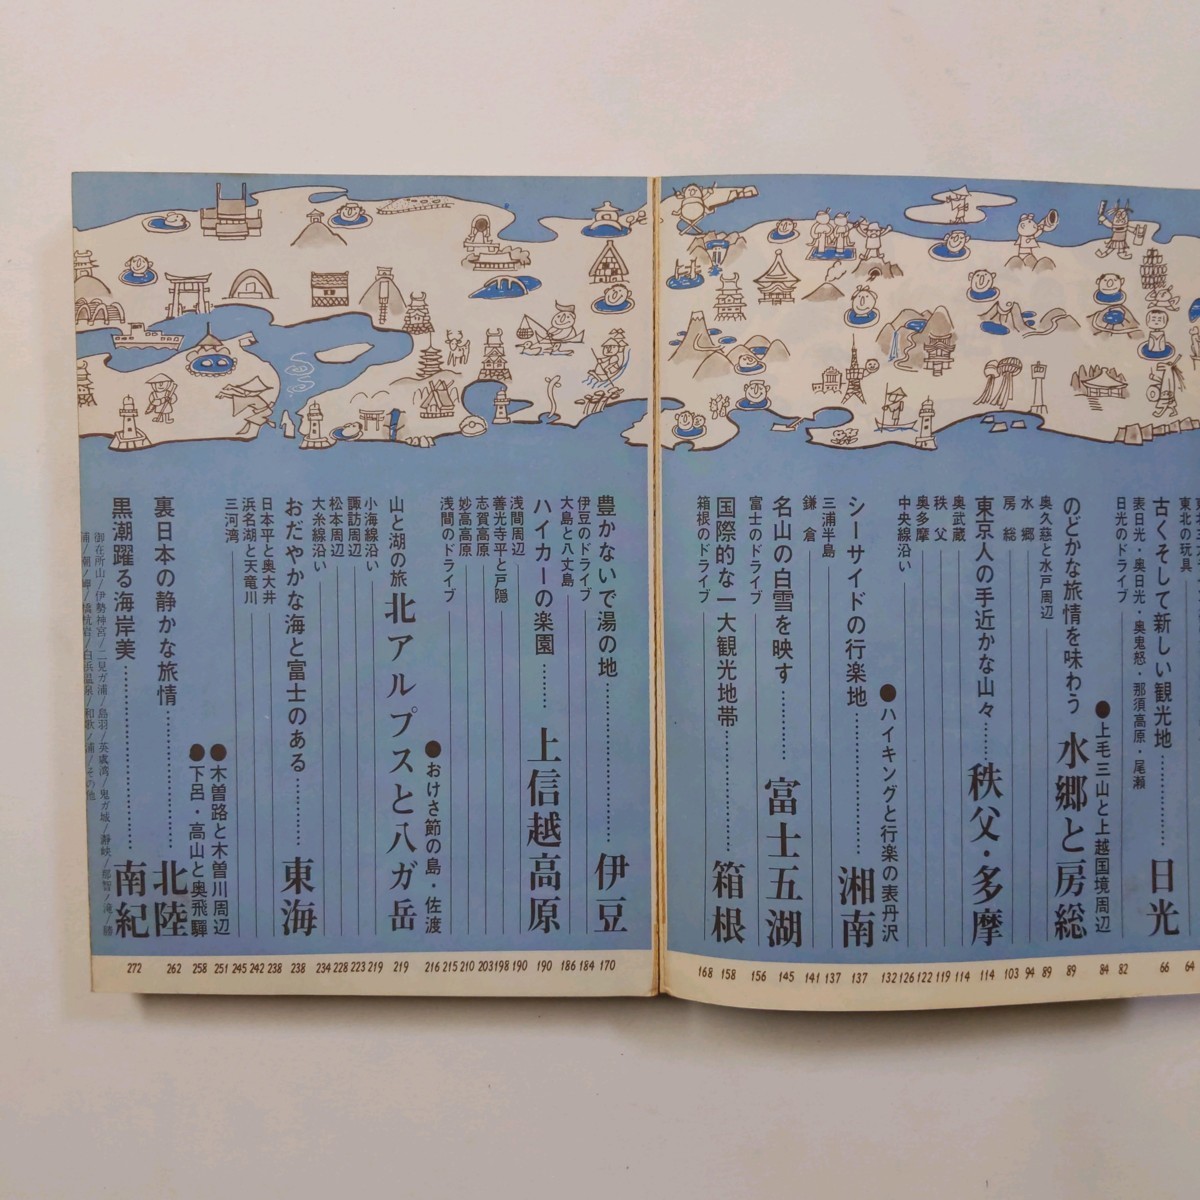 東北の玩具
64
古くそして新しい観光地…………日光
66
表日光・奥日光・奥鬼怒・那須高原・尾瀬
日光のドライブ
82
●上毛三山と上越国境周辺
84
のどかな旅情を味わう 水郷と房総
89
奥久慈と水戸周辺
89
水郷
94
房総
103
東京人の手近かな山々……秩父・多摩
114
奥武蔵
114
秩父
119
奥多摩
122
中央線沿い
126
●ハイキングと行楽の表丹沢
132
シーサイドの行楽地…………湘南
137
三浦半島
137
鎌倉
141
名山の白雪を映す…………富士五湖
145
富士のドライブ
156
国際的な一大観光地帯…………箱根
158
箱根のドライブ
168
豊かないで湯の地…………伊豆
170
伊豆のドライブ
184
大島と八丈島
186
ハイカーの楽園……上信越高原
190
浅間周辺
190
善光寺平と戸隠
198
志賀高原
203
妙高高原
210
浅間のドライブ
215
●おけさ節の島・佐渡
216
山と湖の旅 北アルプスと八ガ岳
219
小海線沿い
219
諏訪周辺
223
松本周辺
228
大糸線沿い
234
おだやかな海と富士のある…………東海
238
日本平と奥大井
238
浜名湖と天竜川
242
三河湾
245
●木曽路と木曽川周辺
251
●下呂・高山と奥飛騨
258
裏日本の静かな旅情…………北陸
262
黒潮躍る海岸美…………南紀
272
御在所山/伊勢神宮/二見ガ浦/鳥羽/英虞湾/鬼ガ城/瀞峡/那智ノ滝/勝
浦/潮ノ岬/橋杭岩/白浜温泉/和歌ノ浦/その他